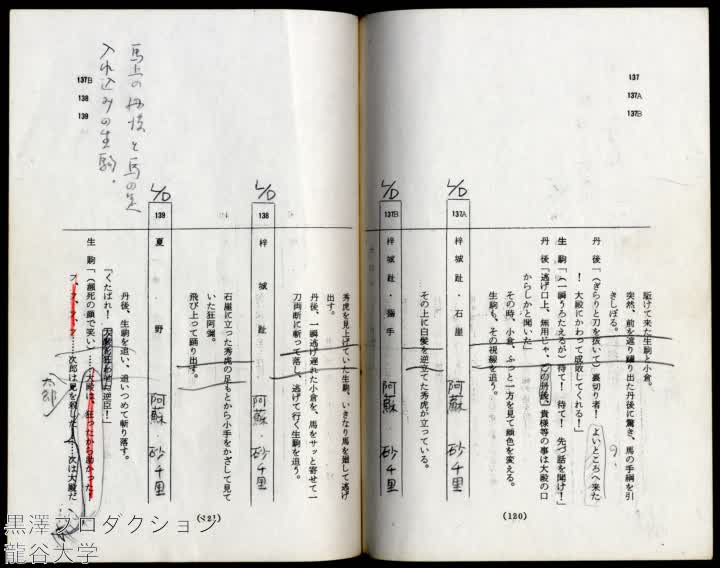 137
137A
137B
駈けて来た生駒と小倉。
突然、前を遮り躍り出た丹後に驚き、馬の手綱を引
きしぼる。
丹後「(ぎらりと刀を抜いて)裏切り者! よいところへ来た
! 大殿にかわって成敗してくれる!」
生駒「(一瞬うろたえるが)待て! 待て! 先づ話を聞け!」
丹後「逃げ口上、無用じゃ、この期に 貴様等の事は大殿の口
からしかと聞いた!」
その時、小倉、ふっと一方を見て顔色を変える。
生駒も、その視線を追う。
L/D
137A
梓城趾・石崖
阿蘇・砂千里
その上に白髪を逆立てた秀虎が立っている。
L/D
137B
梓城趾・搦手
阿蘇・砂千里
(120)
秀虎を見上げていた生駒、いきなり馬を廻して逃げ
出す。
丹後、一瞬逃げ遅れた小倉を、馬をサッと寄せて一
刀両断に斬って落し、逃げて行く生駒を追う。
L/D
138
梓城趾
阿蘇・砂千里
石崖に立った秀虎の足もとから小手をかざして見て
いた狂阿彌。
飛び上って踊り出す。
L/D
139
夏野
阿蘇・砂千里
丹後、生駒を追い、追いつめて斬り落す。
「くたばれ!
逆臣!」
生駒「(瀕死の顔で笑い)……大殿は、狂ったから助かった
フ、フ、フ、フ……次郎は兄を殺した!……次は大殿だ
太郎
137B
138
139
馬上の丹後と馬の足
入れ込みの生駒。
(121)
黒澤プロダクション
龍谷大学